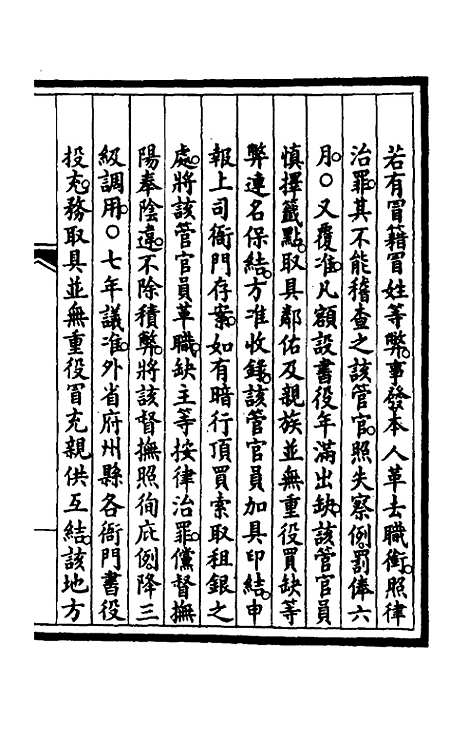 若有冒籍冒姓等弊。事發本人革去職銜。照律
治罪。其不能稽查之該管官。照失察例。罰俸六
月。○又覆准。凡額設書役年滿出缺。該管官員
慎擇籤點。取具鄰佑及親族並無重役買缺等
弊連名保結。方准收錄。該管官員加具印結。申
報上司衙門存案。如有暗行頂買索取租銀之
處。將該管官員革職。缺主等按律治罪。儻督撫
陽奉陰違。不除積弊。將該督撫照徇庇例降三
級調用。○七年議准。外省府州縣各衙門書役
投充。務取具並無重役冒充親供互結。該地方